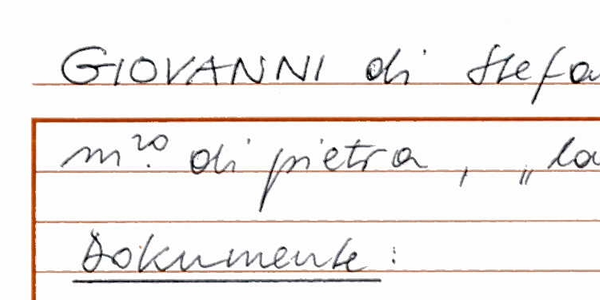 GIOVANNI di Stefa
m.ro di pietra, „la
Dokumente: